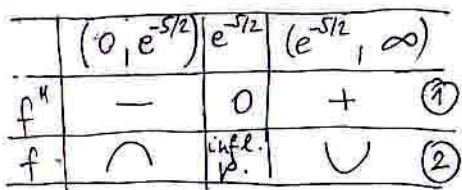 (0, e^{-5/2}) e^{-5/2} (e^{-5/2}, ∞)
f" − 0 + ①
f ∩ infl. p. ∪ ②